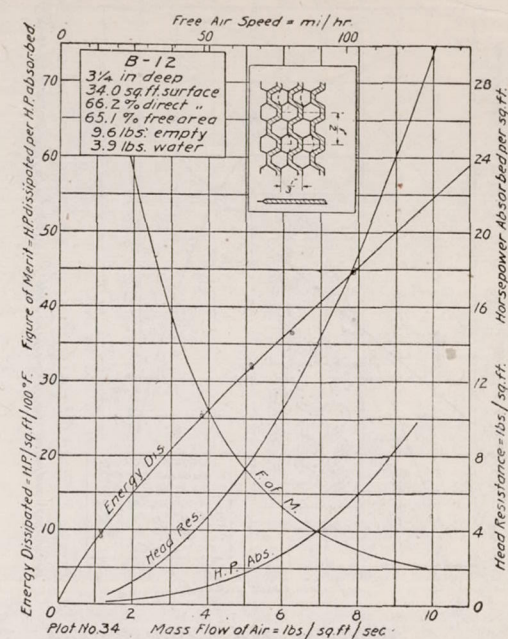 Free Air Speed = mi/hr.
50
100
B-12
3¼ in deep
34.0 sq.ft. surface
66.2 % direct "
65.1 % free area
9.6 lbs. empty
3.9 lbs. water
Figure of Merit = H.P. dissipated per H.P. absorbed.
Energy Dissipated = H.P./sq.ft/100°F.
70
60
50
40
30
20
10
0
Horsepower Absorbed per sq.ft.
Head Resistance = lbs./sq.ft.
28
24
20
16
12
8
4
0
Energy Dis.
Head Res.
F of M.
H.P. Abs.
0
2
4
6
8
10
Plot No. 34
Mass Flow of Air = lbs/sq.ft/sec.